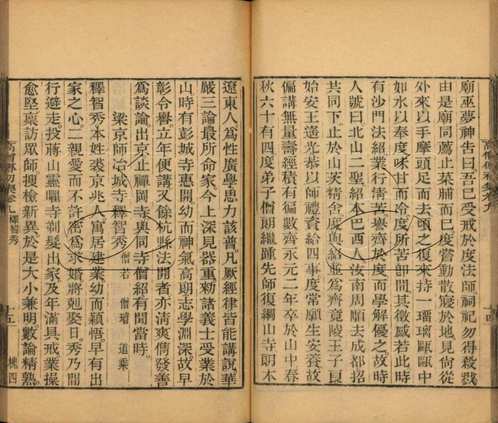 廟巫夢神告曰吾已受戒於度法師祠祀勿得殺戮
由是廟同薦止菜脯而已度嘗動散寢於地見尚從
外來以手摩頭足而去頃之復來持一瑠璃甌甌中
如水以奉度味甘而冷度所苦即間其徵感若此時
有沙門法紹業行清苦譽齊於度而學解優之故時
人號曰北山二聖紹本巴西人汝南周顒去成都招
共同下止於山茨精舍度與紹並爲齊竟陵王子良
始安王遙光恭以師禮資給四事度常願生安養故
偏講無量壽經積有徧數齊永元二年卒於山中春
秋六十有四度弟子僧朗繼踵先師復綱山寺朗本
遼東人爲性廣學思力該普凡厥經律皆能講說華
嚴三論最所命家今上深見器重勅諸義士受業於
山時有彭城寺惠開幼而神氣高朗志學淵深故早
彰令譽立年便講又餘杭縣法開者亦清爽俊發善
爲談論出京止禪岡寺與同寺僧紹有聞當時
梁京師冶城寺釋智秀 僧若 僧璿 道乘
釋智秀本姓裘京兆人寓居建業幼而穎悟早有出
家之心二親愛而不許密爲求婚將剋娶日秀乃間
行避走投蔣山靈曜寺剃髮出家及年滿具戒業操
愈堅稟訪眾師搜檢新異於是大小兼明數論精熟
十五 桃四